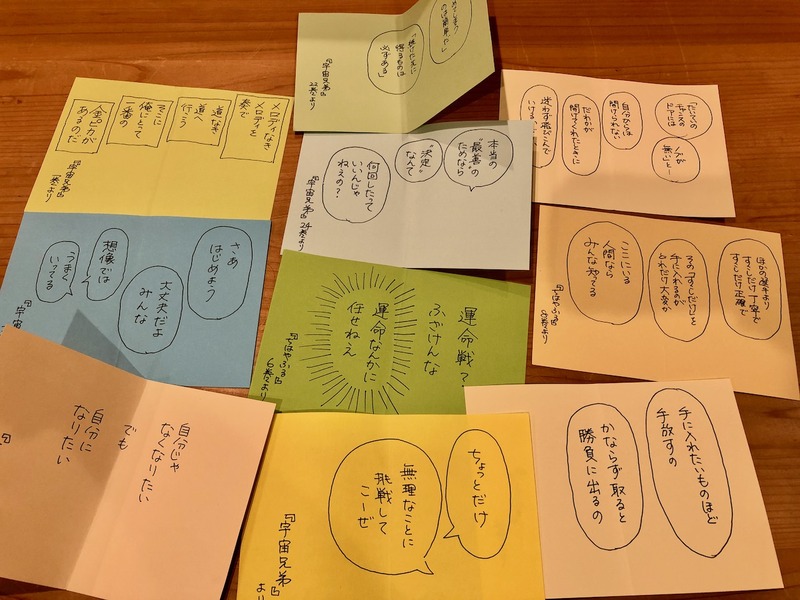 得るものは
必ずある」
『宇宙兄弟』
22巻より
メロディなき
メロディを
奏で
道なき
道へ
行こう
そこに
俺にとって
一番の
金ピカが
あるのだ
『宇宙兄弟』
1巻より
本当の
"最善"の
ためなら
"決定"
なんて
何回したって
いいんじゃ
ねえの?
『宇宙兄弟』24巻より
ノブが
無いと―
自分からは
開けられない
だれかが
開けてくれたときに
迷わず飛びこんで
いけるか
さあ
はじめよう
大丈夫だよ
みんな
想像では
うまく
いってる
『宇宙
運命戦?
ふざけんな
運命なんかに
任せねえ
『ちはやふる』
6巻より
ほかの選手より
すこしだけ丁寧で
すこしだけ正確で
その「すこしだけ」を
手に入れるのが
どれだけ大変か
ここにいる
人間なら
みんな知ってる
『ちはやふる』
8巻より
自分じゃ
なくなりたい
でも
自分に
なりたい
ちょっとだけ
無理なことに
挑戦して
こーぜ
『宇宙兄弟』
より
手に入れたいものほど
手放すの
かならず取ると
勝負に出るの